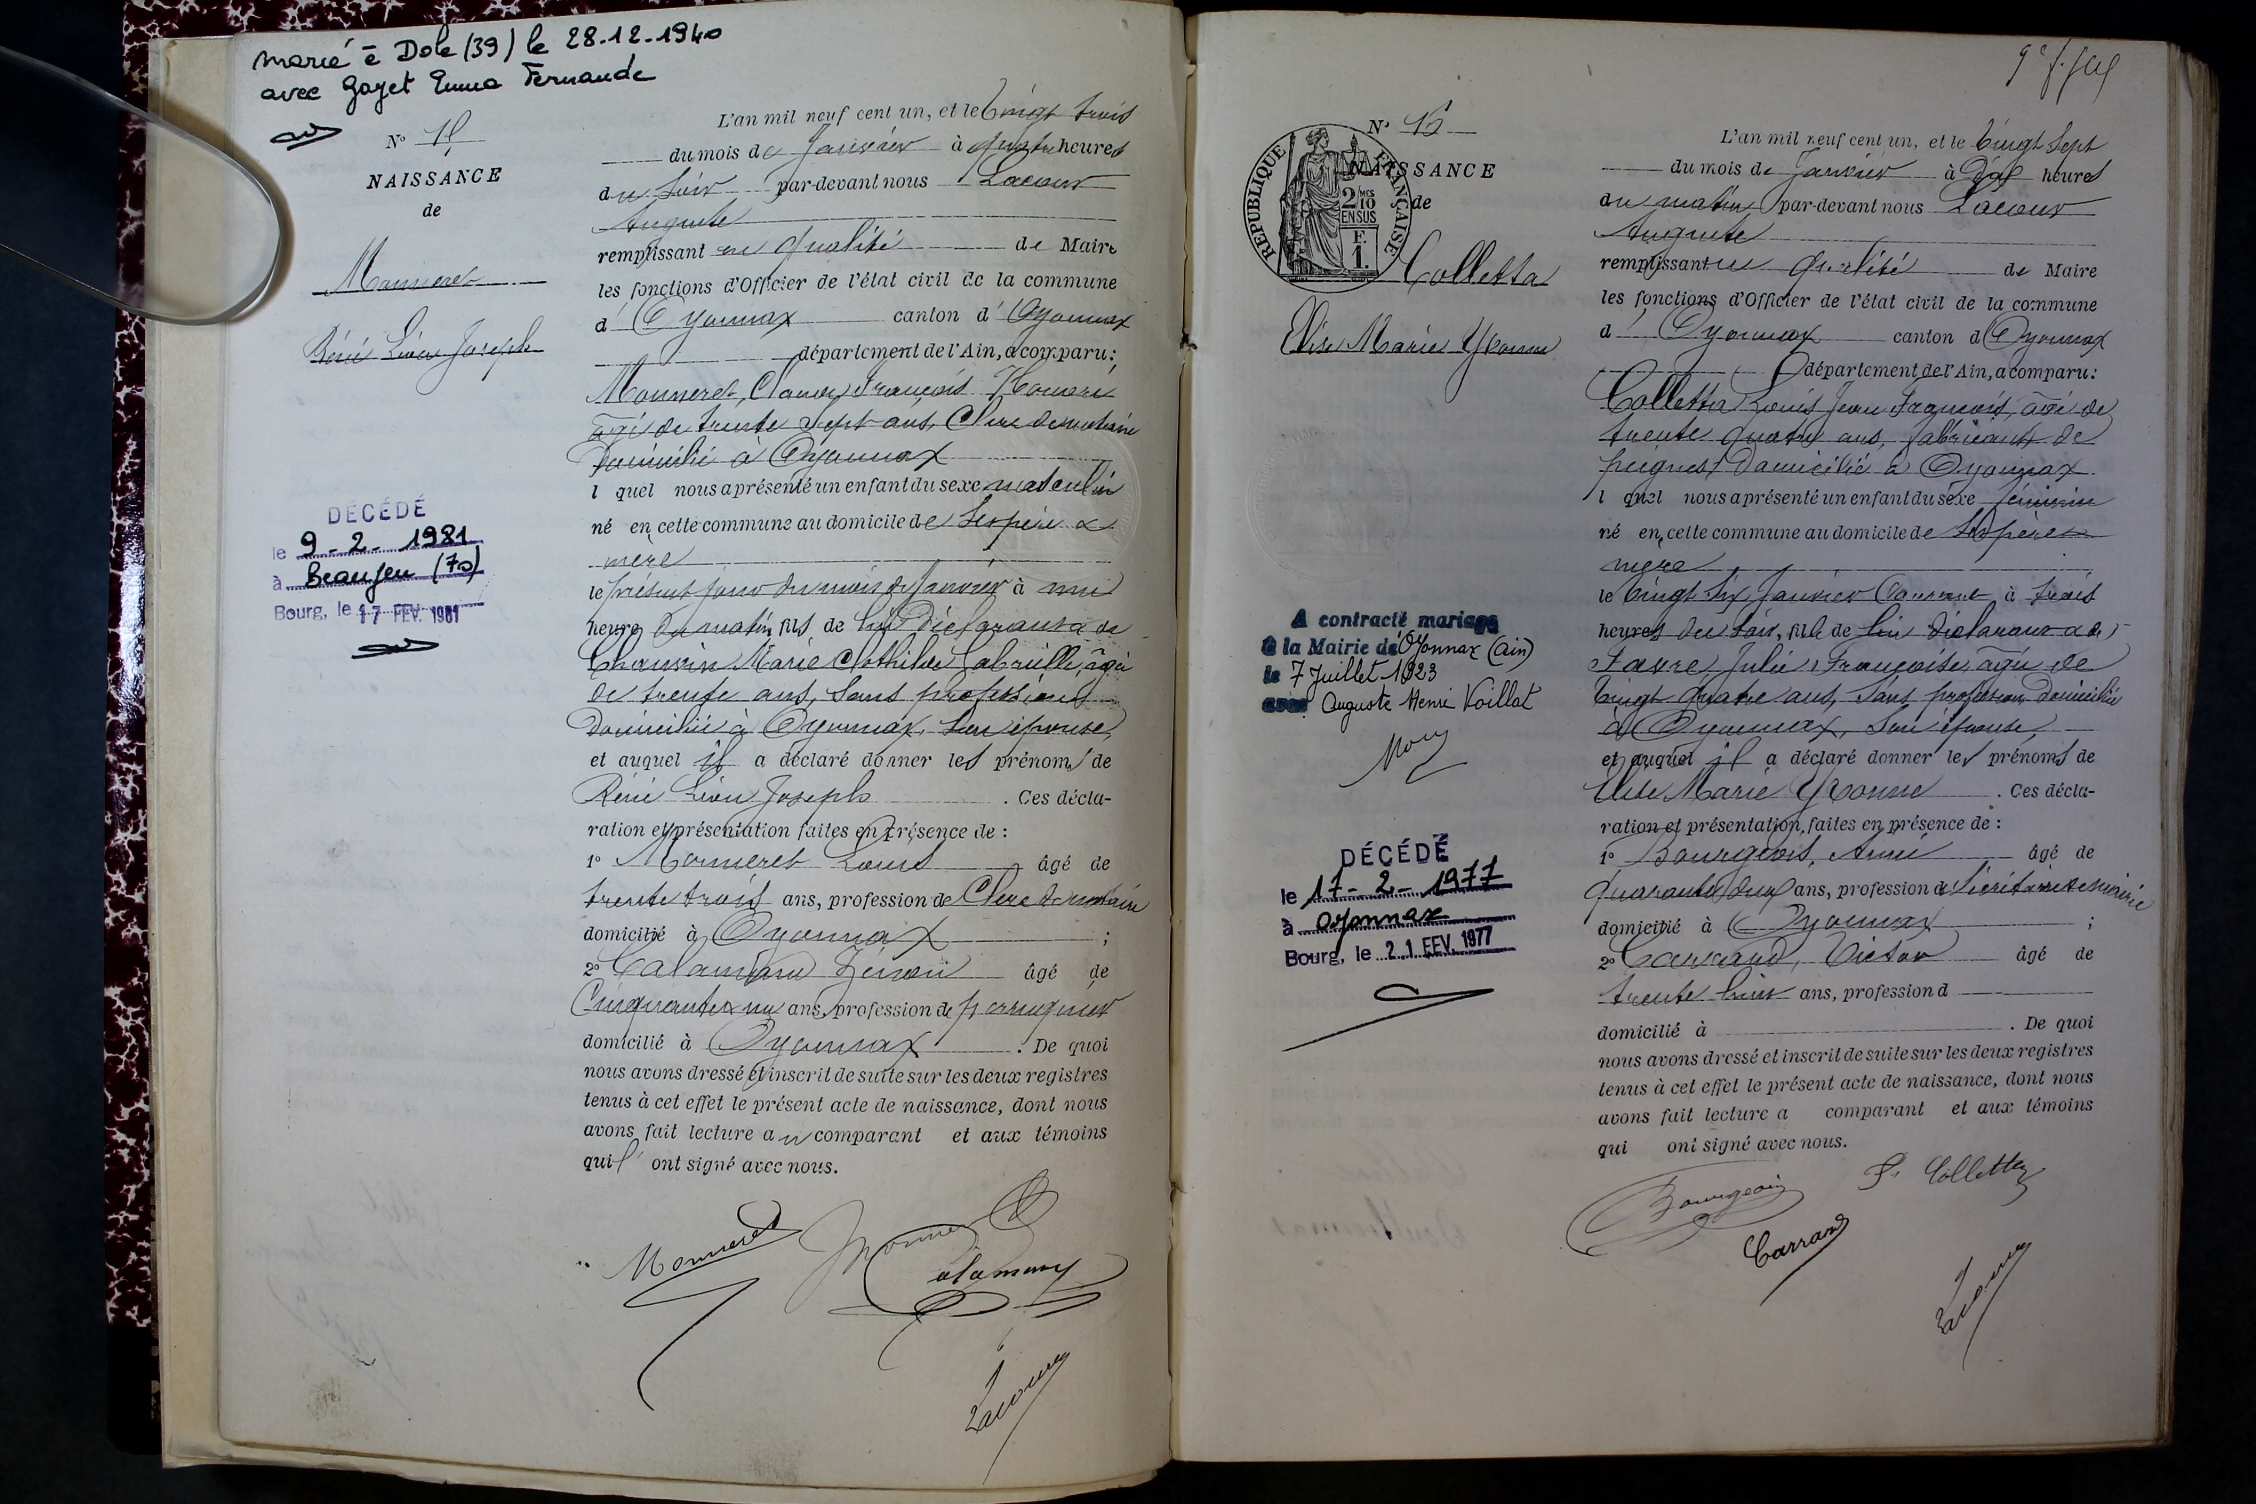 marié à Dole (39) le 28.12.1940
avec Gayet Emma Fernande
N°
NAISSANCE
de
Monneret
Réné Léon Joseph
DÉCÉDÉ
le 9-2-1981
à Beaujeu (70)
Bourg, le 17 FEV. 1981
L'an mil neuf cent un, et le vingt trois
du mois de Janvier à quatre heures
du soir par-devant nous Lacour
Auguste
remplissant en qualité de Maire
les fonctions d'Officier de l'état civil de la commune
d' Oyonnax canton d' Oyonnax
département de l'Ain, a comparu:
Monneret, François Honoré
âgé de trente sept ans, Clerc de notaire
domicilié à Oyonnax
l quel nous a présenté un enfant du sexe masculin
né en cette commune au domicile de ses père &
mère
le présent jour du mois de Janvier à une
heure du matin, fils de lui Déclarant & de
Chauvin Marie Clothilde Gabrielle, âgée
de trente ans, sans profession
domiciliée à Oyonnax, son épouse,
et auquel il a déclaré donner les prénoms de
Réné Léon Joseph . Ces décla-
ration et présentation faites en présence de :
1° Monneret Louis âgé de
trente trois ans, profession de Clerc de notaire
domicilié à Oyonnax ;
2° âgé de
Cinquante un ans, profession de perruquier
domicilié à Oyonnax . De quoi
nous avons dressé et inscrit de suite sur les deux registres
tenus à cet effet le présent acte de naissance, dont nous
avons fait lecture au comparant et aux témoins
qui ont signé avec nous.
Monneret
Lacour
N° 15
NAISSANCE
de
RÉPUBLIQUE FRANÇAISE
2/10 MES
EN SUS
F.
1.
Colletta
Elise Marie Yvonne
A contracté mariage
à la Mairie de Oyonnax (Ain)
le 7 Juillet 1923
avec Auguste Henri Voillat
DÉCÉDÉ
le 17-2-1977
à Oyonnax
Bourg, le 21 FEV. 1977
L'an mil neuf cent un, et le vingt sept
du mois de Janvier à Dix heures
du matin par-devant nous Lacour
Auguste
remplissant en qualité de Maire
les fonctions d'Officier de l'état civil de la commune
d' Oyonnax canton d Oyonnax
département de l'Ain, a comparu:
Colletta Louis Jean François, âgé de
trente quatre ans, fabricant de
peignes, domicilié à Oyonnax
l quel nous a présenté un enfant du sexe féminin
né en cette commune au domicile de ses père &
mère
le vingt six Janvier Courant à trois
heures du soir, fille de lui Déclarant & de
Favre, Julie Françoise, âgée de
vingt quatre ans, sans profession, domiciliée
à Oyonnax, son épouse,
et auquel il a déclaré donner les prénoms de
Elise Marie Yvonne . Ces décla-
ration et présentation, faites en présence de :
1° Bourgeois, Aimé âgé de
quarante deux ans, profession de Secrétaire de mairie
domicilié à Oyonnax ;
2° Carrand, Victor âgé de
trente huit ans, profession d
domicilié à . De quoi
nous avons dressé et inscrit de suite sur les deux registres
tenus à cet effet le présent acte de naissance, dont nous
avons fait lecture a comparant et aux témoins
qui ont signé avec nous.
Bourgeois
Colletta
Carrand
Lacour